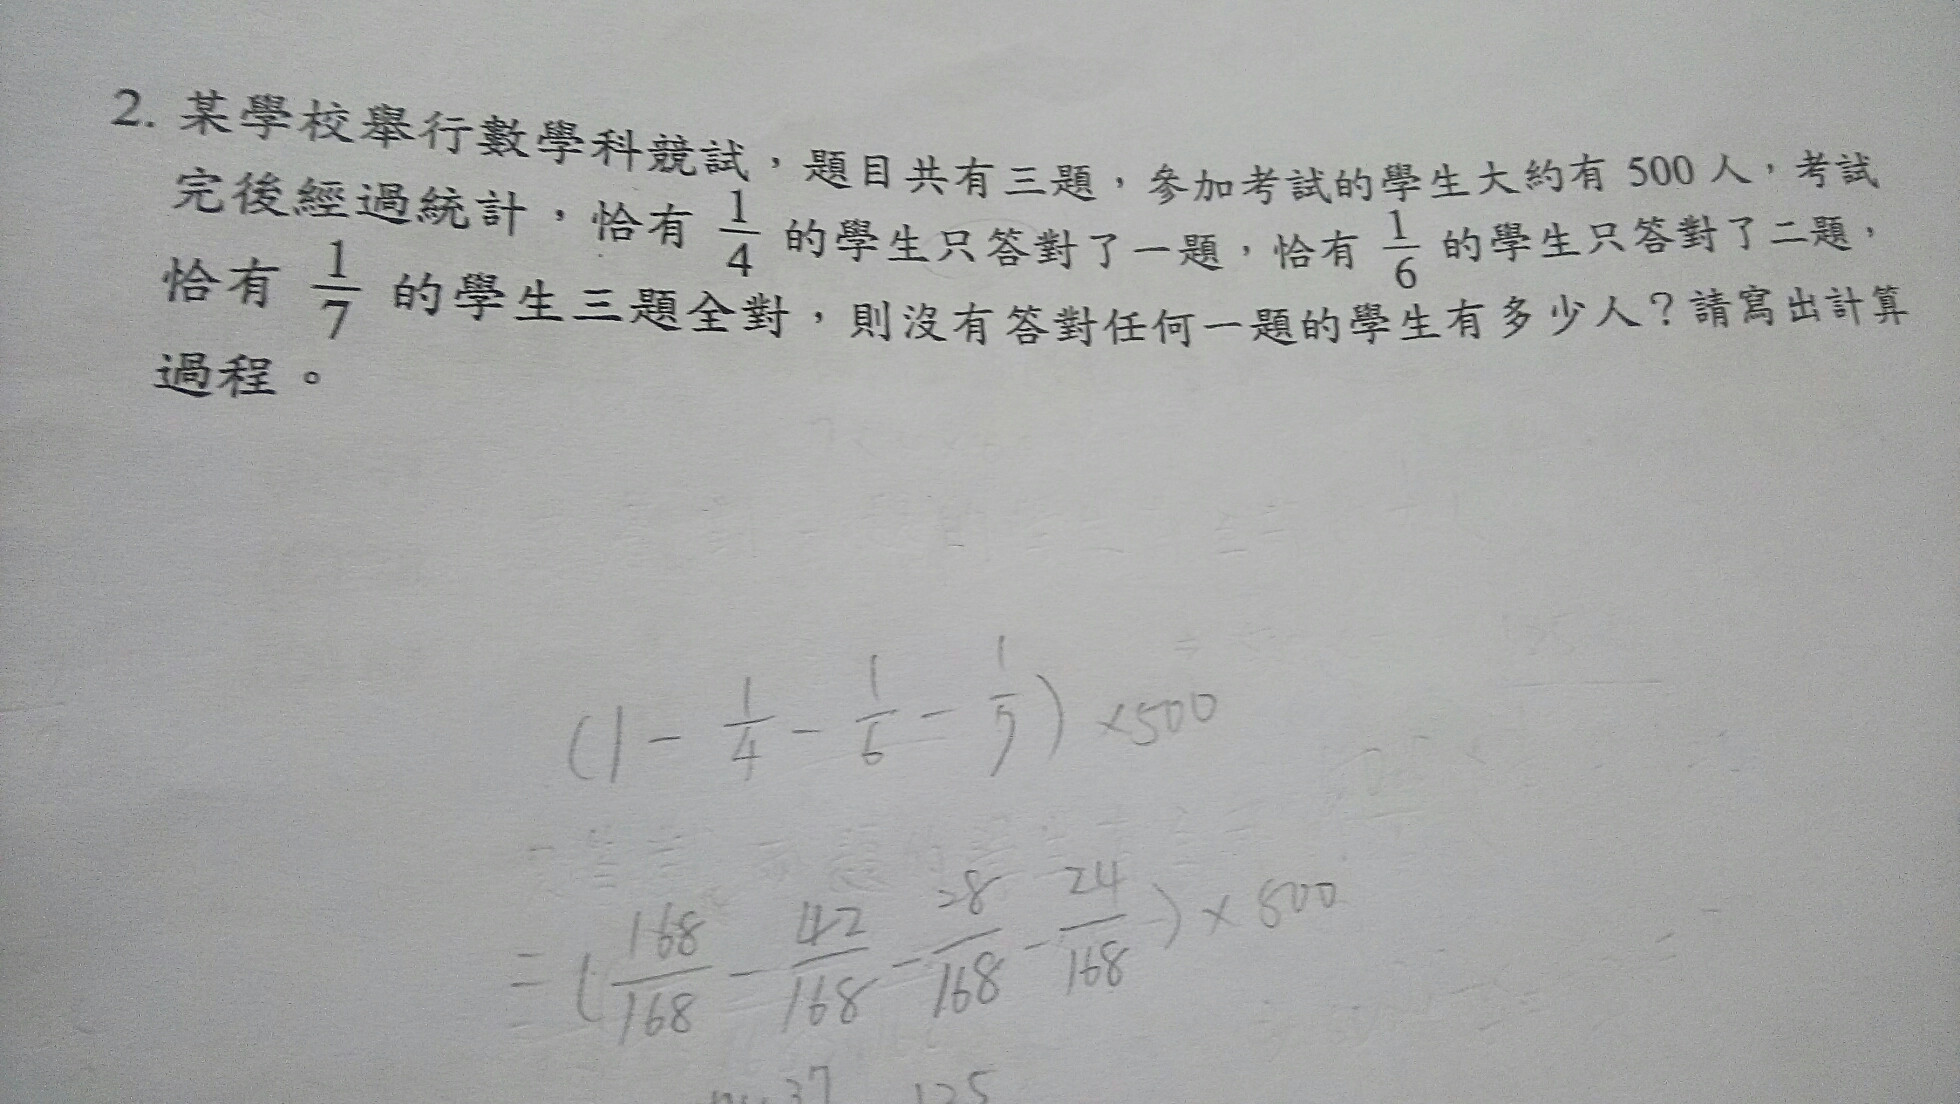 2. 某學校舉行數學科競試，題目共有三題，參加考試的學生大約有 500 人，考試
完後經過統計，恰有 1/4 的學生只答對了一題，恰有 1/6 的學生只答對了二題，
恰有 1/7 的學生三題全對，則沒有答對任何一題的學生有多少人？請寫出計算
過程。
(1 - 1/4 - 1/6 - 1/7) ×500
= (168/168 - 42/168 - 28/168 - 24/168) × 500
37 125